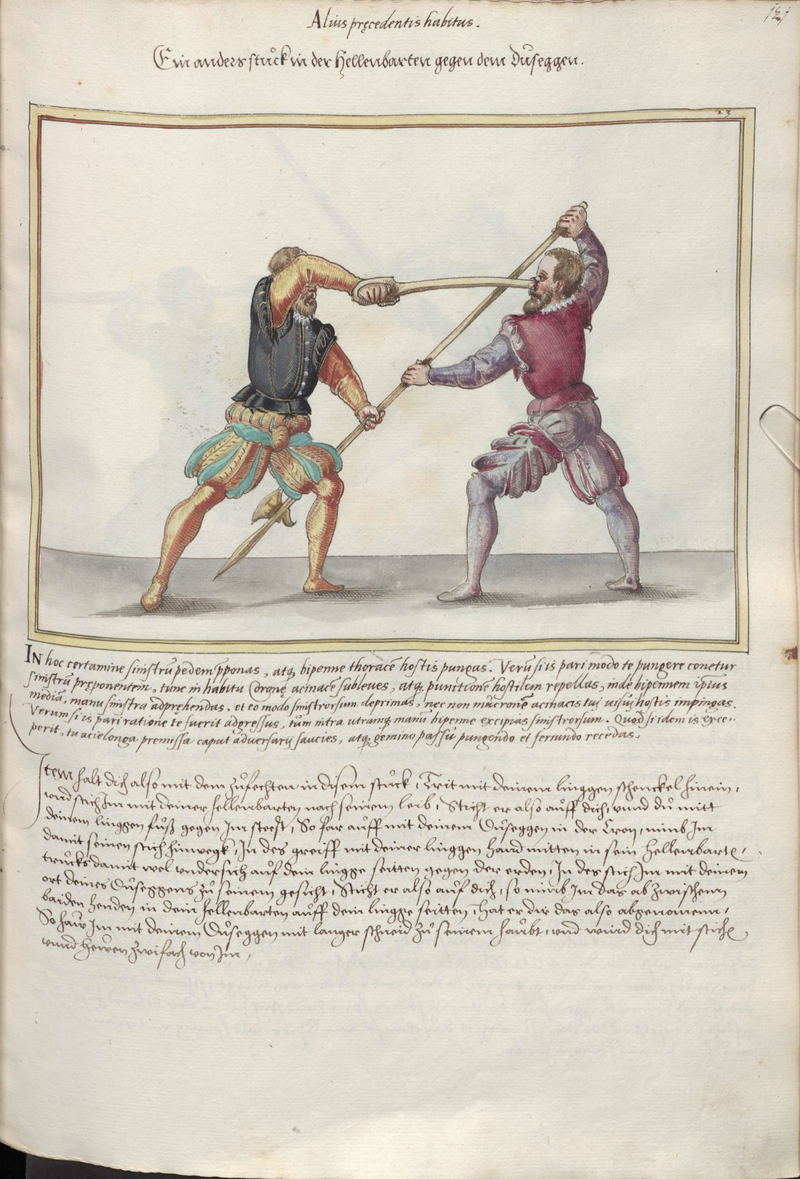 Alius pręcedentis habitus.
121
Ein anders stuck in der Hellenbarten gegen dem Duseggen.
23
IN hoc certamine sinistrū pedem ꝓponas, atq. bipenne thoracē hostis pungas. Verū si is pari modo te pungere conetur
sinistrū pręponentem, tunc in habitu Coronę acinacē subleves, atq. punitionē hostilem repellas, inde bipennem ipsius
mediā, manu sinistra adprehendas, et eo modo sinistrorsum deprimas, nec non mucronē acinacis tui visui hostis impingas.
Verum si is pari ratione te fuerit adgressus, tum intra utramq. manū bipenne excipias sinistrorsum. Quod si idem is exce-
perit, tu acie longa premissa caput adversarij saucies, atq. gemino passu pungendo et feriundo recedas.
Item halt dich also mit dem zufechten in disem stuck, Trit mit deinem linggen schenckel hinein,
vnd stich Im mit deiner hellenbarten nach seinem leib, Sticht er also auff dich, vnnd du mitt
deinem linggen fuß gegen Im steest, So far auff mit deinem Duseggen in der Cron, nimb Im
damit seinen stich hinwegk, In des greiff mit deiner linggen hand mitten in sein hellenbarte,
trucks damit wol undersich auf dein lingge seitten gegen der erden, In des stich Im mit deinem
ort deines Duseggens zu seinem gesicht, Sticht er also auf dich, so nimb Im das ab zwischenn
baiden henden in dem hellenbarten auff dein lingge seitten, hat er dir das also abgenomenn,
So haw Im mit deinem Duseggen mit langer schneid zu seinem haubt, vnd wind dich mit stich
vnnd hewen zwifach von Im,